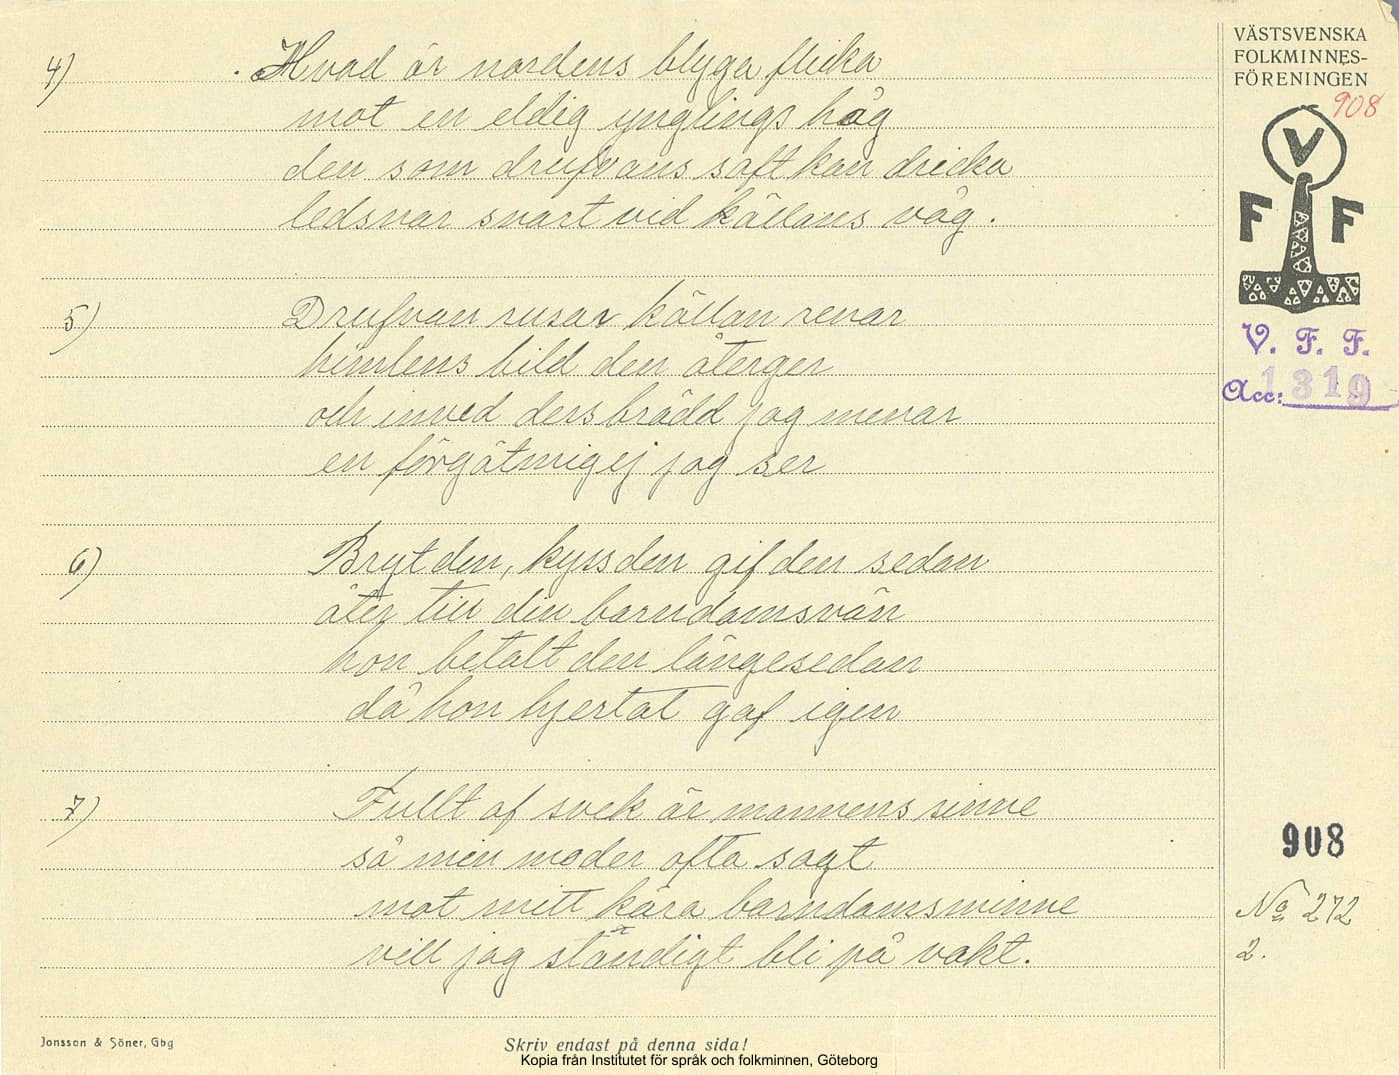 4) Hvad är nordens blyga flicka
mot en eldig ynglings håg
den som drufvans saft kan dricka
ledsnar snart vid källans våg.
5) Drufvan rusar källan renar
himlens bild den återger
och invid dess brädd jag menar
en förgätmigej jag ser
6) Bryt den, kyss den gif den sedan
åter till din barndomsvän
hon betalt den längesedan
då hon hjertat gaf igen
7) Fullt af svek är mannens sinne
så min moder ofta sagt
mot mitt kära barndomsminne
vill jag ständigt bli på vakt.
VÄSTSVENSKA
FOLKMINNES-
FÖRENINGEN
908
V
F F
V. F. F.
Acc: 1319
908
No 272
2.
Jonsson & Söner, Gbg
Skriv endast på denna sida!
Kopia från Institutet för språk och folkminnen, Göteborg